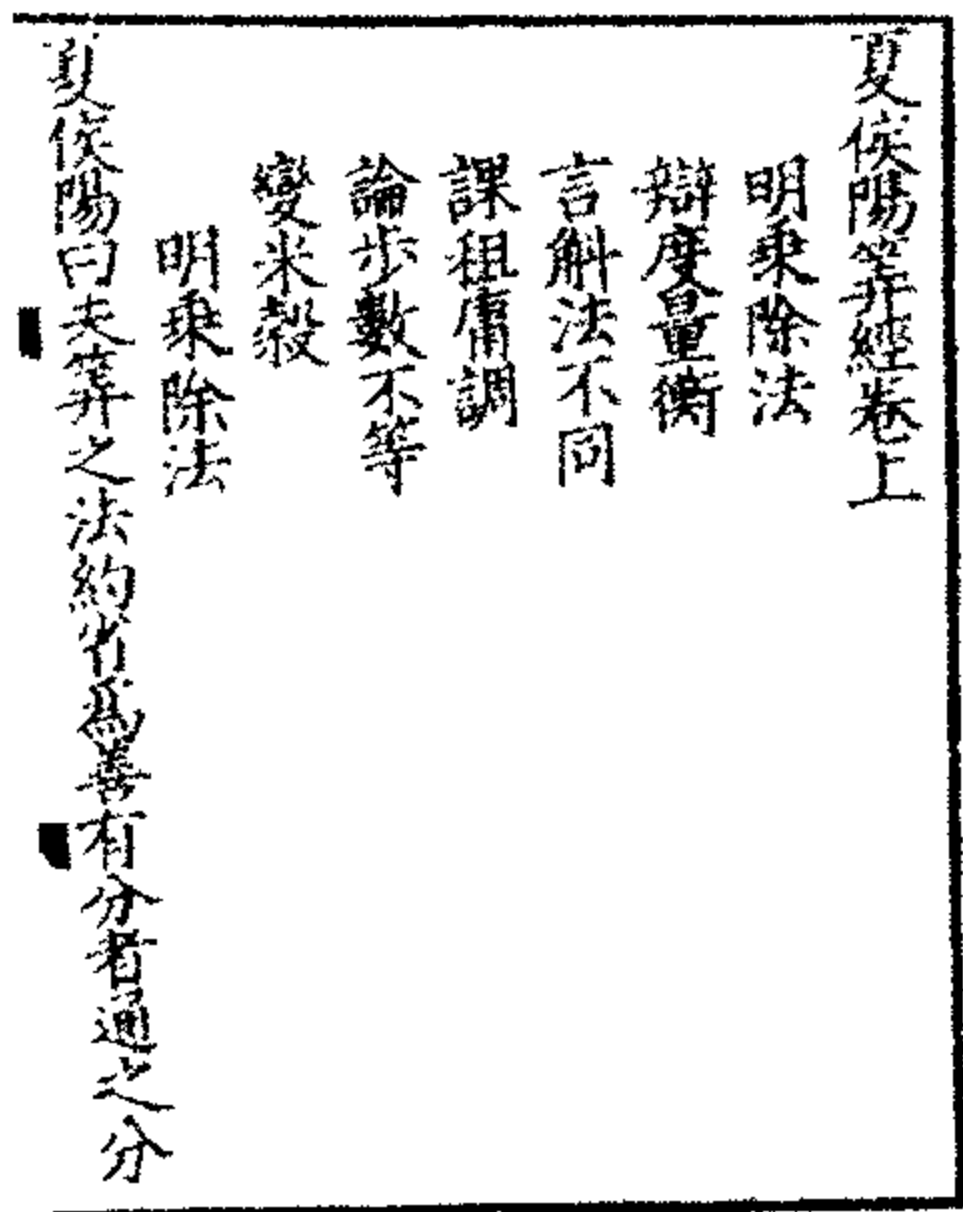 夏侯陽筭經卷上
明乗除法
辯度量衡
言斛法不同
課租庸調
論步數不等
變米穀
明乗除法
夏侯陽曰夫筭之法約省爲善有分者通之分